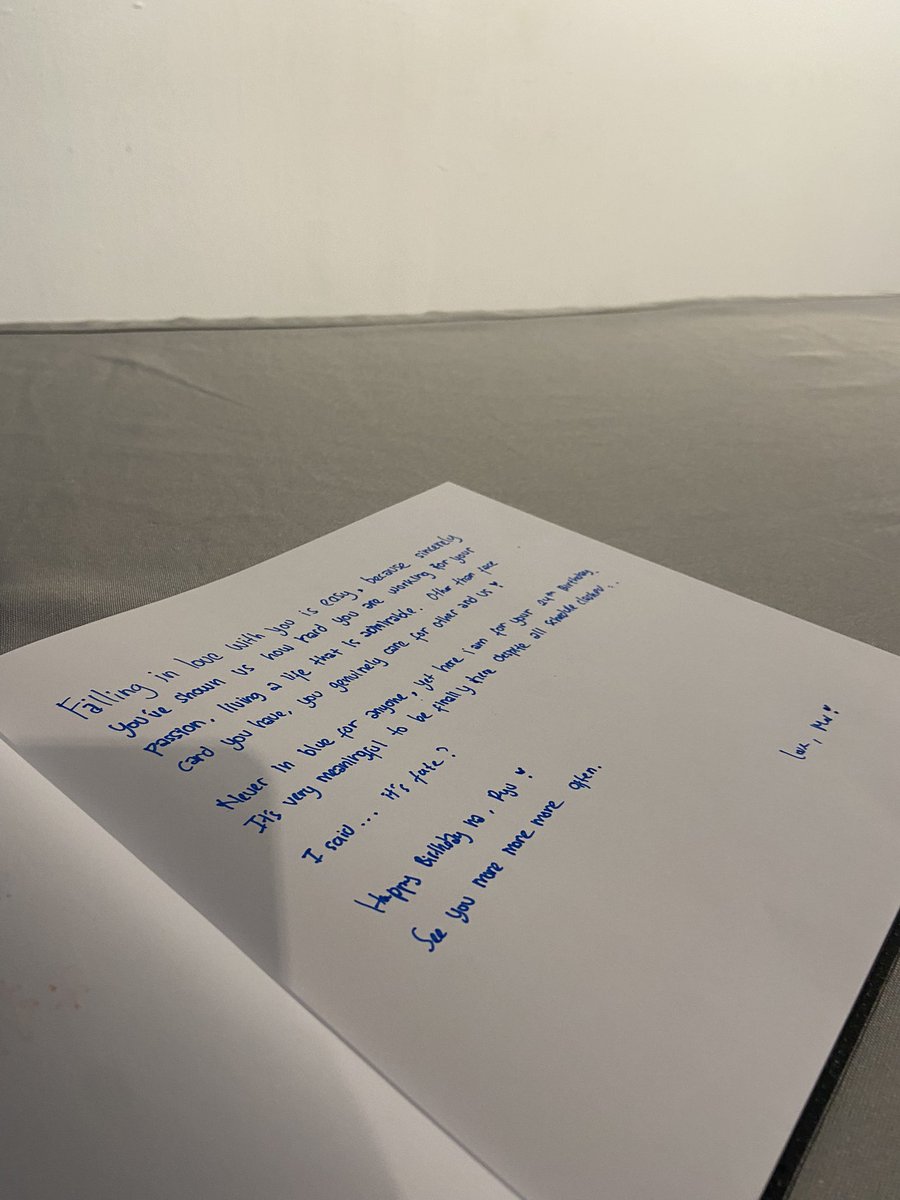 Falling in love with you is easy, because sincerely
you've shown us how hard you are working for your
passion, living a life that is admirable. Other than face
card you have, you genuinely care for other and us ♥
Never in blue for anyone, yet here i am for your 24th Birthday.
It's very meaningful to be finally here despite all schedule clashed...
I said... it's fate?
Happy Birthday ya, Ryu ♥
See you more more more often.
Love,